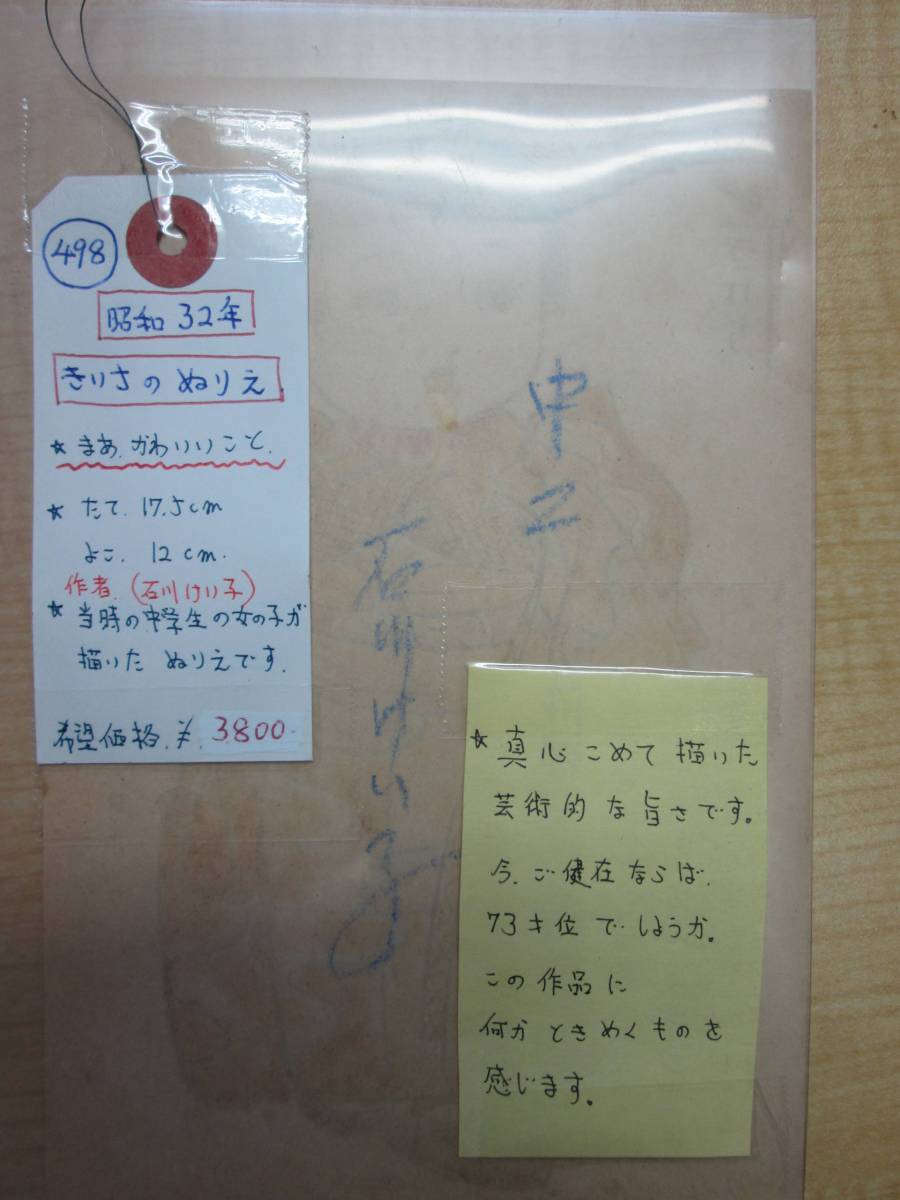 498
昭和32年
きいちのぬりえ
★まあ、かわいいこと。
★たて.17.5cm
よこ.12cm.
作者.(石川けい子)
★当時の中学生の女の子が
描いたぬりえです.
希望価格.¥3800-
中二
石川けい子
★真心こめて描いた
芸術的な旨さです。
今.ご健在ならば.
73才位でしょうか。
この作品に
何かときめくものを
感じます。